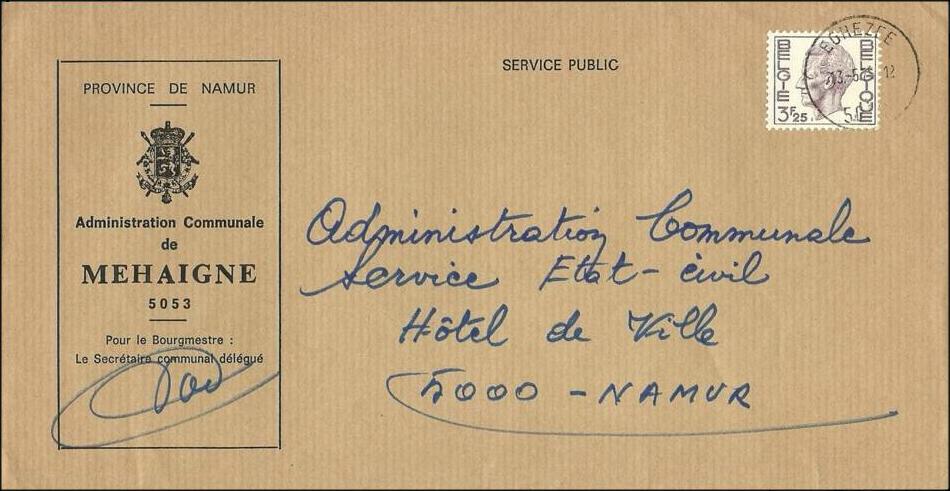 SERVICE PUBLIC
PROVINCE DE NAMUR
Administration Communale
de
MEHAIGNE
5053
Pour le Bourgmestre :
Le Secrétaire communal délégué
BELGIE
BELGIQUE
3F25
EGHEZEE
Administration Communale
Service Etat-civil
Hôtel de Ville
5000 - NAMUR